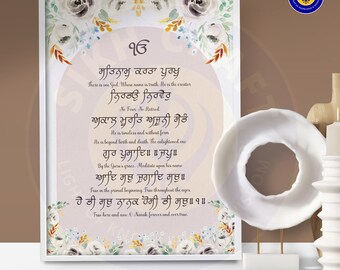 ੴ
ਸਤਿਨਾਮੁ ਕਰਤਾ ਪੁਰਖੁ
There is one God. Whose name is truth. He is the creator
ਨਿਰਭਉ ਨਿਰਵੈਰੁ
No Fear. No Hatred.
ਅਕਾਲ ਮੂਰਤਿ ਅਜੂਨੀ ਸੈਭੰ
He is timeless and without form
He is beyond birth and death. The enlightened one
ਗੁਰ ਪ੍ਰਸਾਦਿ॥ ॥ਜਪੁ॥
By the Guru's grace. Meditate upon his name
ਆਦਿ ਸਚੁ ਜੁਗਾਦਿ ਸਚੁ
True in the primal beginning. True throughout the ages.
ਹੈ ਭੀ ਸਚੁ ਨਾਨਕ ਹੋਸੀ ਭੀ ਸਚੁ॥੧॥
True here and now. O Nanak forever and ever true.